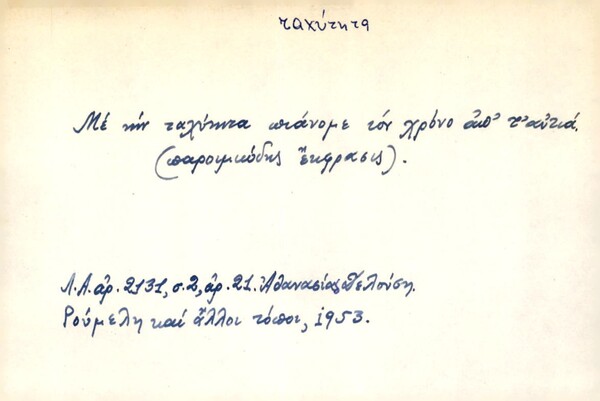 ταχύτητα
Μέ τήν ταχύτητα πιάνομε τόν χρόνο ἀπ' τ' αὐτιά.
(παροιμιώδης ἔκφρασις).
Λ.Α. ἀρ. 2131, σ. 2, ἀρ. 21. Ἀθανασίας
Ρούμελη καί ἄλλοι τόποι, 1953.